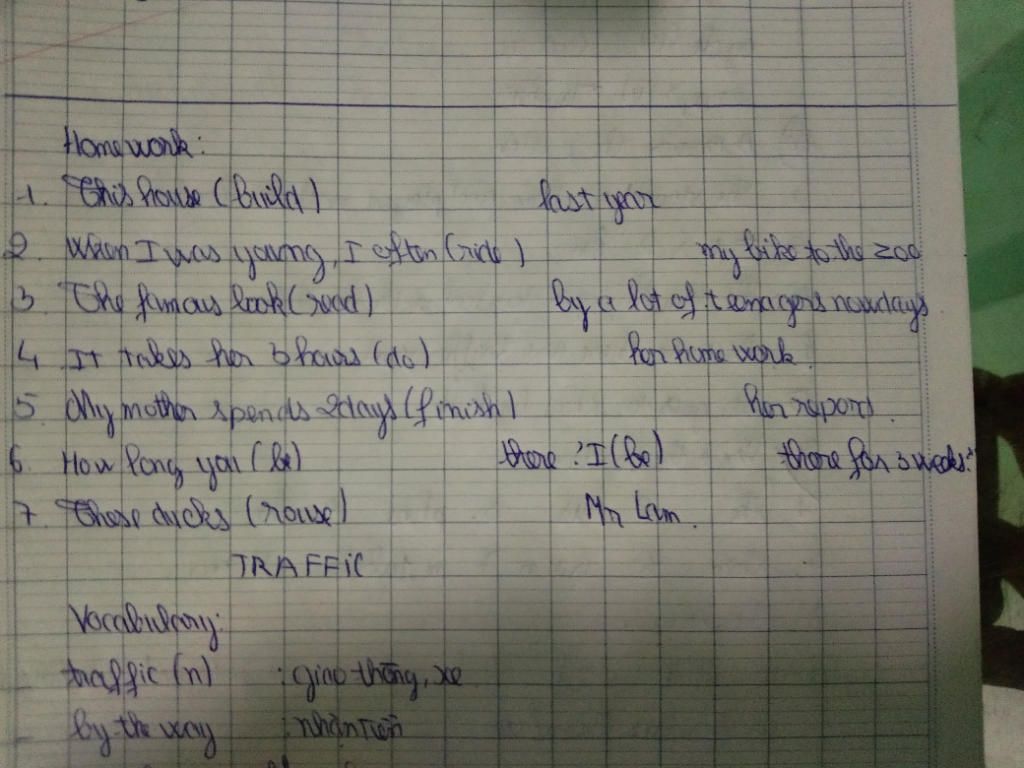 Homework:
1. This house (build) last year
2. When I was young, I often (ride) my bike to the zoo
3. The famous book (read) by a lot of teenagers nowdays.
4. It takes her 3 hours (do) her home work.
5. My mother spends 2 days (finish) her report.
6. How long you (be) there? I (be) there for 3 weeks.
7. These ducks (rause) Mr Lam.
TRAFFIC
Vocabulary:
- traffic (n) : giao thông, xe
- by the way : nhân tiện